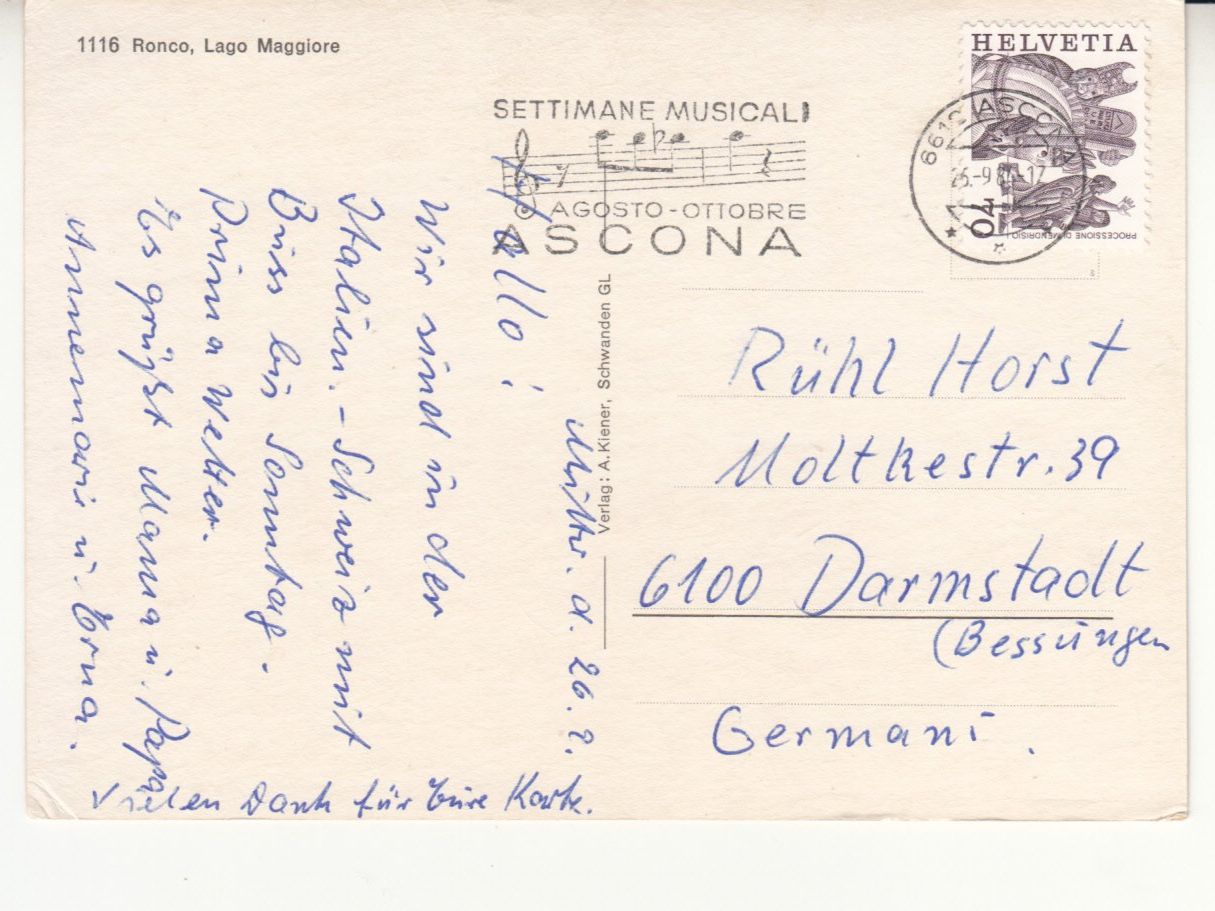 1116 Ronco, Lago Maggiore
SETTIMANE MUSICALI
AGOSTO - OTTOBRE
ASCONA
HELVETIA
40
PROCESSIONE DI MENDRISIO
ASCONA
Verlag: A. Kiener, Schwanden GL
Mittw. d. 26. 9.
Hallo!
Wir sind in der
Italien. - Schweiz mit
Buss bis Sonntag.
Prima Wetter.
Es grüßt Mama u. Papa
Annemarie u. Erna.
Vielen Dank für Eure Karte.
Rühl Horst
Moltkestr. 39
6100 Darmstadt
(Bessungen
Germani.